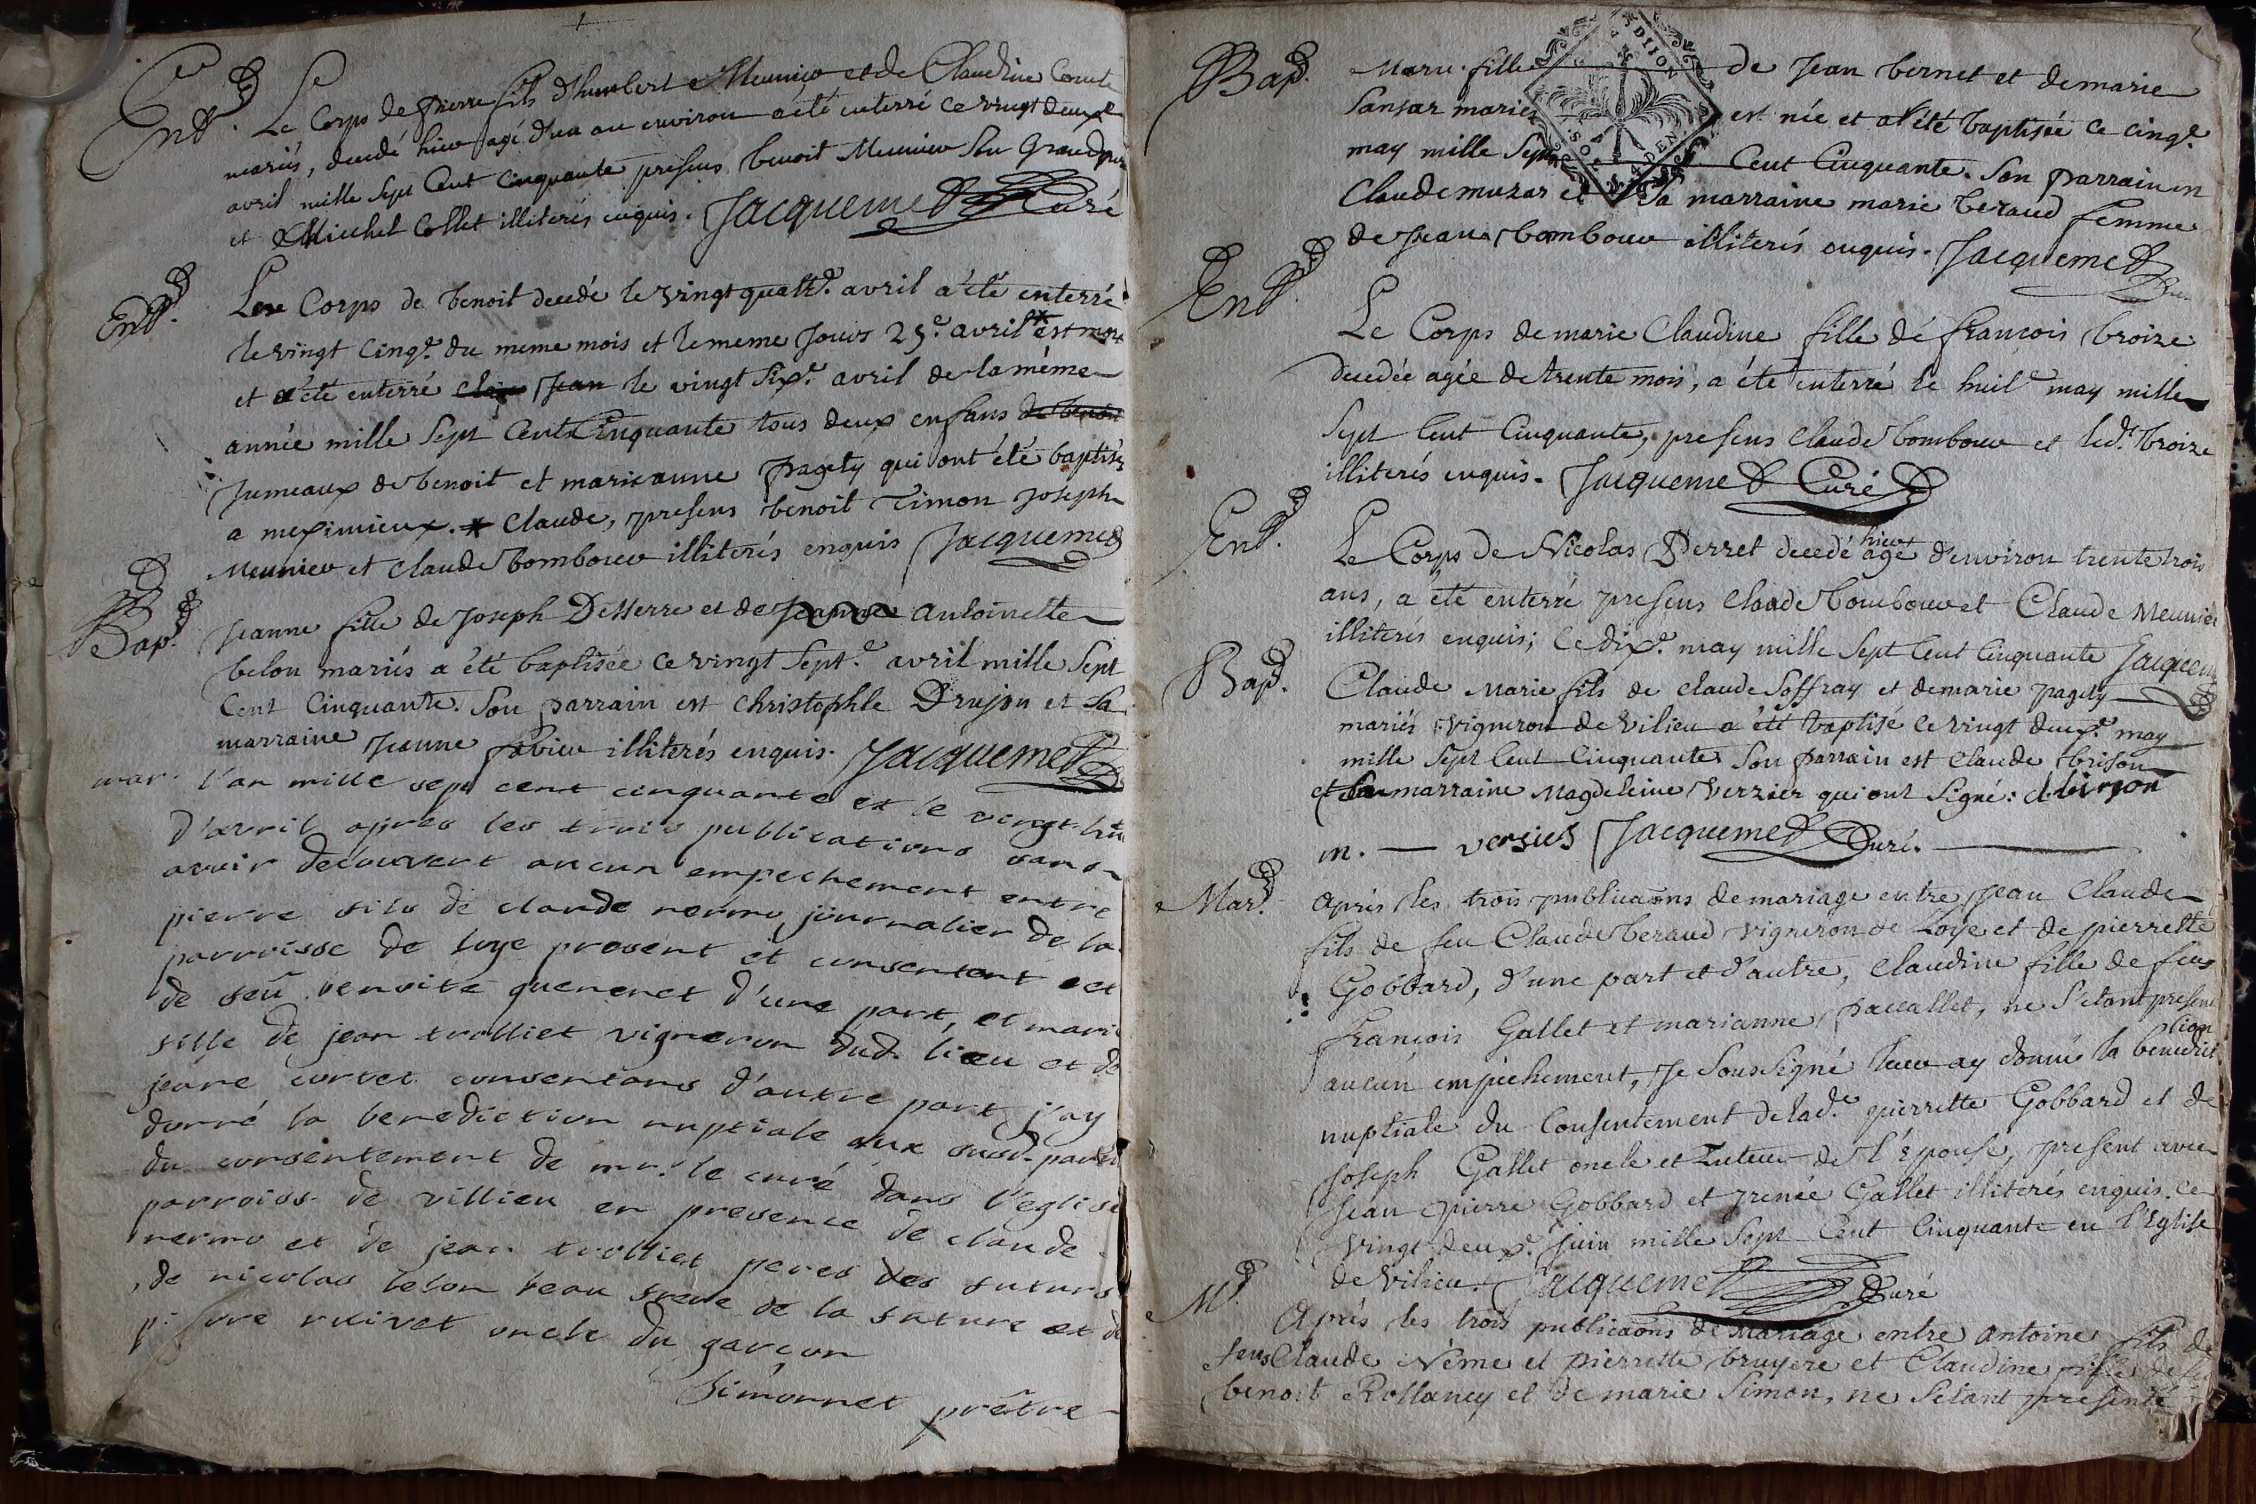 Ent.
Le Corps de pierre fils d'humbert Meunier et de Claudine Cornet
mariés, decedé hier agé d'un an environ a été enterré ce vingt deuxe
avril mille sept Cent cinquante presens benoit Meunier son Grand pere
et Michel Collet illiterés enquis. Jacquemet Curé
Ent.
Le Corps de benoit decedé le vingt quatre. avril a été enterré
le vingt cinqe. du meme mois et le meme jour 25e. avril * est mort
et a été enterré le vingt sixe. avril de la même
année mille sept Cent Cinquante tous deux enfans
jumeaux de benoit et marieanne pagety qui ont été baptisés
a meximieux. * Claude, presens benoit Timon joseph
Meunier et Claude bombour illiterés enquis Jacquemet
Bap.
Jeanne fille de Joseph Desserre et de antoinette
belon mariés a été baptisée ce vingt sept.e avril mille sept
Cent Cinquante. Son parrain est christophle Drujon et sa
marraine Jeanne illiterés enquis. Jacquemet
mar. l'an mille sept cent cinquante et le vingt huit
d'avril apres les trois publications sans
avoir decouvert aucun empechement entre
pierre fils de claude nermo journalier de la
parroisse de loye present et consentant et
de feu benoite d'une part, et marie
fille de jean trolliet vigneron dud. lieu et de
jeane corvet consentans d'autre part j'ay
donné la benediction nuptiale aux susd. parties
du consentement de mr. le curé dans l'eglise
parroiss. de villieu en presence de claude
nermo et de jean trolliet peres des futurs
de nicolas belon beau frere de la future et de
oncle du garçon
Simonnet prêtre
Bap.
Marie fille de Jean bernet et de marie
Sansar mariés est née et a été baptisée ce cinqe.
may mille sept Cent Cinquante. Son parrain
Claude muzar et sa marraine marie beraud femme
de Jean bombour illiterés enquis. Jacquemet
Ent.
Le Corps de marie Claudine fille de françois broize
decedée agée de trente mois, a été enterré le huite may mille
sept Cent Cinquante, presens Claude bombour et led. broize
illiterés enquis. Jacquemet Curé
Ent.
hier
Le Corps de Nicolas Perret decedé agé d'environ trente trois
ans, a été enterré presens Claude bombour et Claude Meunier
illiterés enquis; ce dixe. may mille sept Cent Cinquante Jacquemet
Bap.
Claude Marie fils de claude Soffray et de marie pagety
mariés vigneron de vilieu a été baptisé ce vingt deuxe. may
mille sept Cent Cinquante Son parrain est Claude brison
et sa marraine Magdeleine Verzier qui ont signé: C. brison
m. — versies Jacquemet Curé.
Mar.
Aprés les trois publicaons de mariage entre Jean Claude
fils de feu Claude beraud vigneron de Loye et de pierrette
Gobbard, d'une part et d'autre, Claudine fille de feus
françois Gallet et marianne paccallet, ne s'etant presenté
aucun empechement, Je soussigné leur ay donné la benediction
nuptiale du Consentement de lade. pierrette Gobbard et de
Joseph Gallet oncle et Tuteur de l'Epouse, present avec
Jean pierre Gobbard et Gallet illiterés enquis. ce
vingt deuxe. Juin mille sept Cent Cinquante en l'Eglise
de Vilieu. Jacquemet Curé
M.
Aprés les trois publicaons de Mariage entre antoine fils de
feus Claude Néme et pierrette bruyere et Claudine fille de feu
benoit Rollancy et de marie Simon, ne s'etant presenté